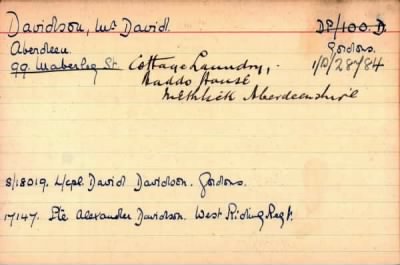 Davidson, Mr David. DP/100.D.
Aberdeen. Gordons.
99. Maberley St. Cottage Laundry, 1/D/28784
Haddo House
Methlick Aberdeenshire
S/18019. L/cpl. David Davidson. Gordons.
17147. Pte Alexander Davidson. West Riding Regt.